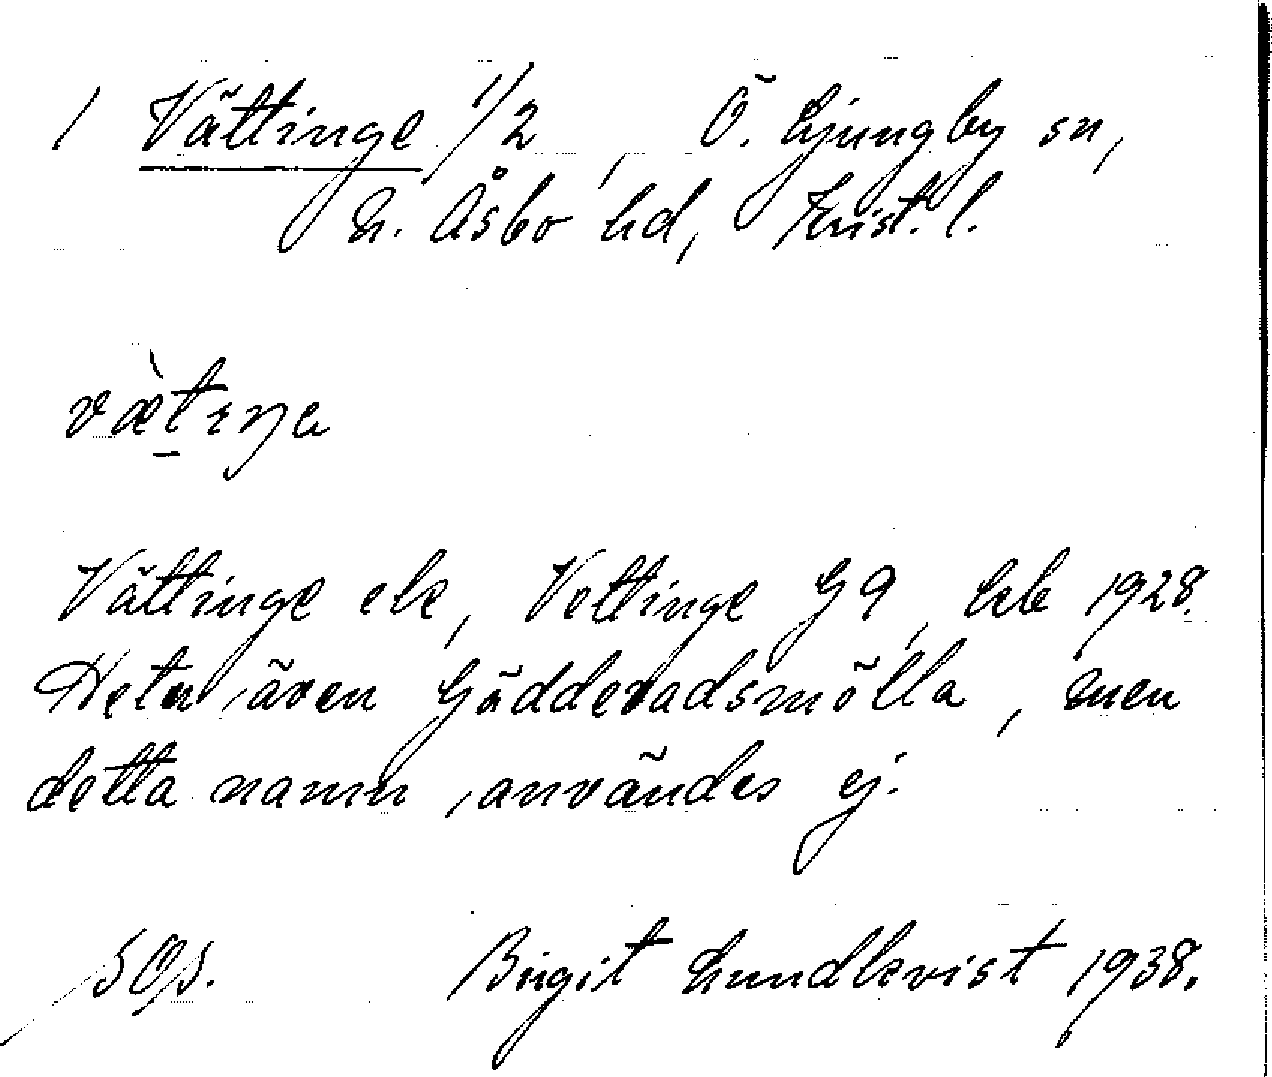 1 Vättinge 1/2, Ö. Ljungby sn,
N. Åsbo hd, Krist. l.
væ̀t̲ɪŋa
Vättinge ek, Vettinge G9, kbl 1928.
Heter även Gäddevadsmölla, men
detta namn användes ej.
Birgit Lundkvist 1938.